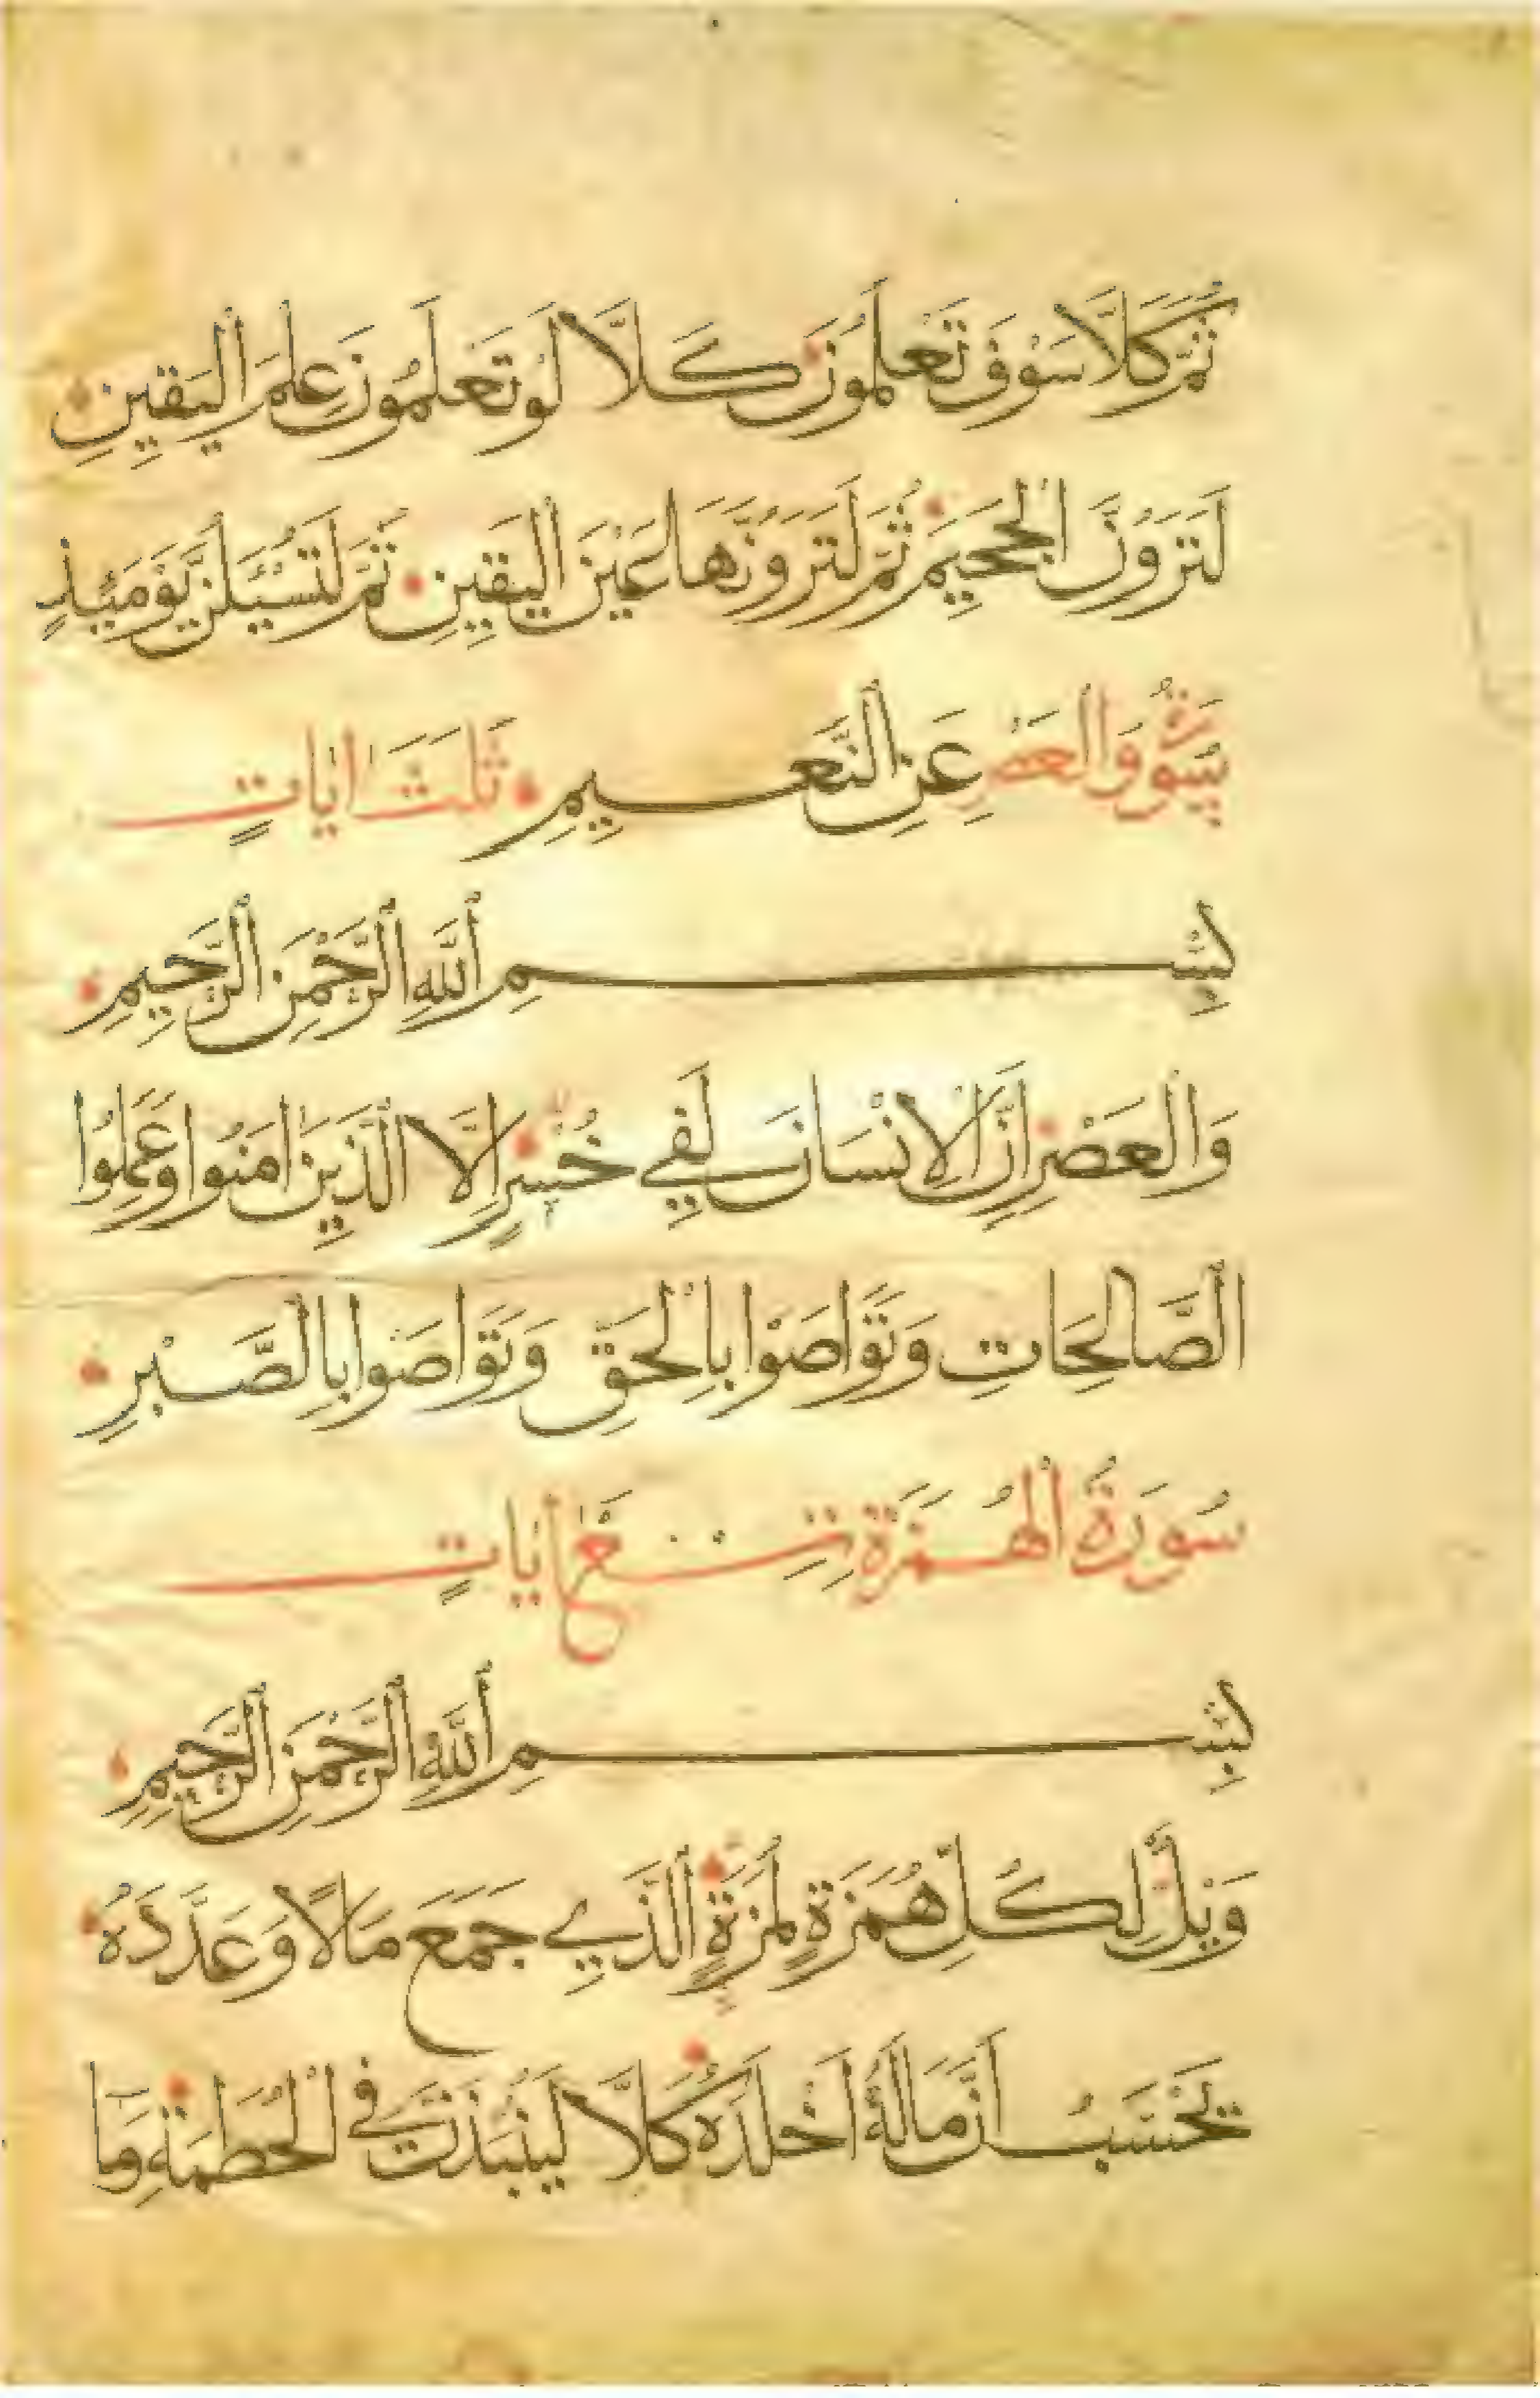 ثُمَّ كَلَّا سَوْفَ تَعْلَمُونَ كَلَّا لَوْ تَعْلَمُونَ عِلْمَ الْيَقِينِ
لَتَرَوُنَّ الْجَحِيمَ ثُمَّ لَتَرَوُنَّهَا عَيْنَ الْيَقِينِ ثُمَّ لَتُسْئَلُنَّ يَوْمَئِذٍ
سُورَةُ وَالْعَصْرِ عَنِ النَّعِيمِ ثَلَثَ ايَاتٍ
بِسْمِ اللَّهِ الرَّحْمَنِ الرَّحِيمِ
وَالْعَصْرِ اِنَّ الْاِنْسَانَ لَفِي خُسْرٍ اِلَّا الَّذِينَ امَنُوا وَعَمِلُوا
الصَّالِحَاتِ وَتَوَاصَوْا بِالْحَقِّ وَتَوَاصَوْا بِالصَّبْرِ
سُورَةُ الْهُمَزَةِ تِسْعُ ايَاتٍ
بِسْمِ اللَّهِ الرَّحْمَنِ الرَّحِيمِ
وَيْلٌ لِكُلِّ هُمَزَةٍ لُمَزَةٍ الَّذِي جَمَعَ مَالًا وَعَدَّدَهُ
يَحْسَبُ اَنَّ مَالَهُ اَخْلَدَهُ كَلَّا لَيُنْبَذَنَّ فِي الْحُطَمَةِ وَمَا